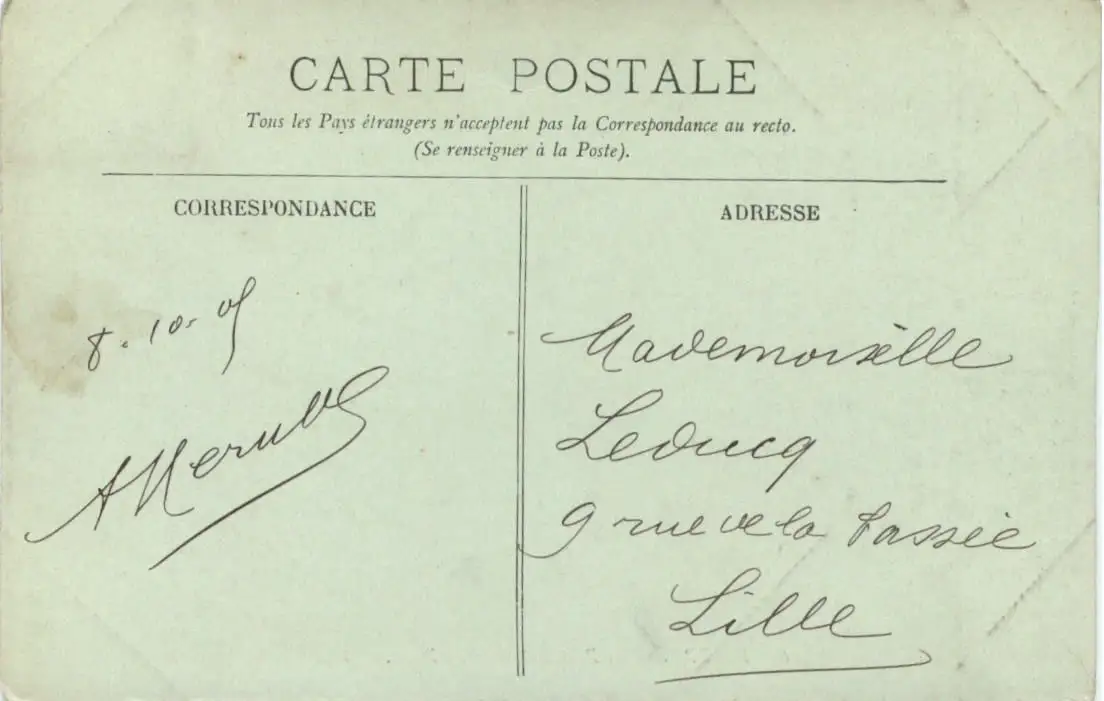 CARTE POSTALE
Tous les Pays étrangers n'acceptent pas la Correspondance au recto.
(Se renseigner à la Poste).
CORRESPONDANCE
8. 10. 05
ADRESSE
Mademoiselle
Leducq
9 rue de la Bassée
Lille